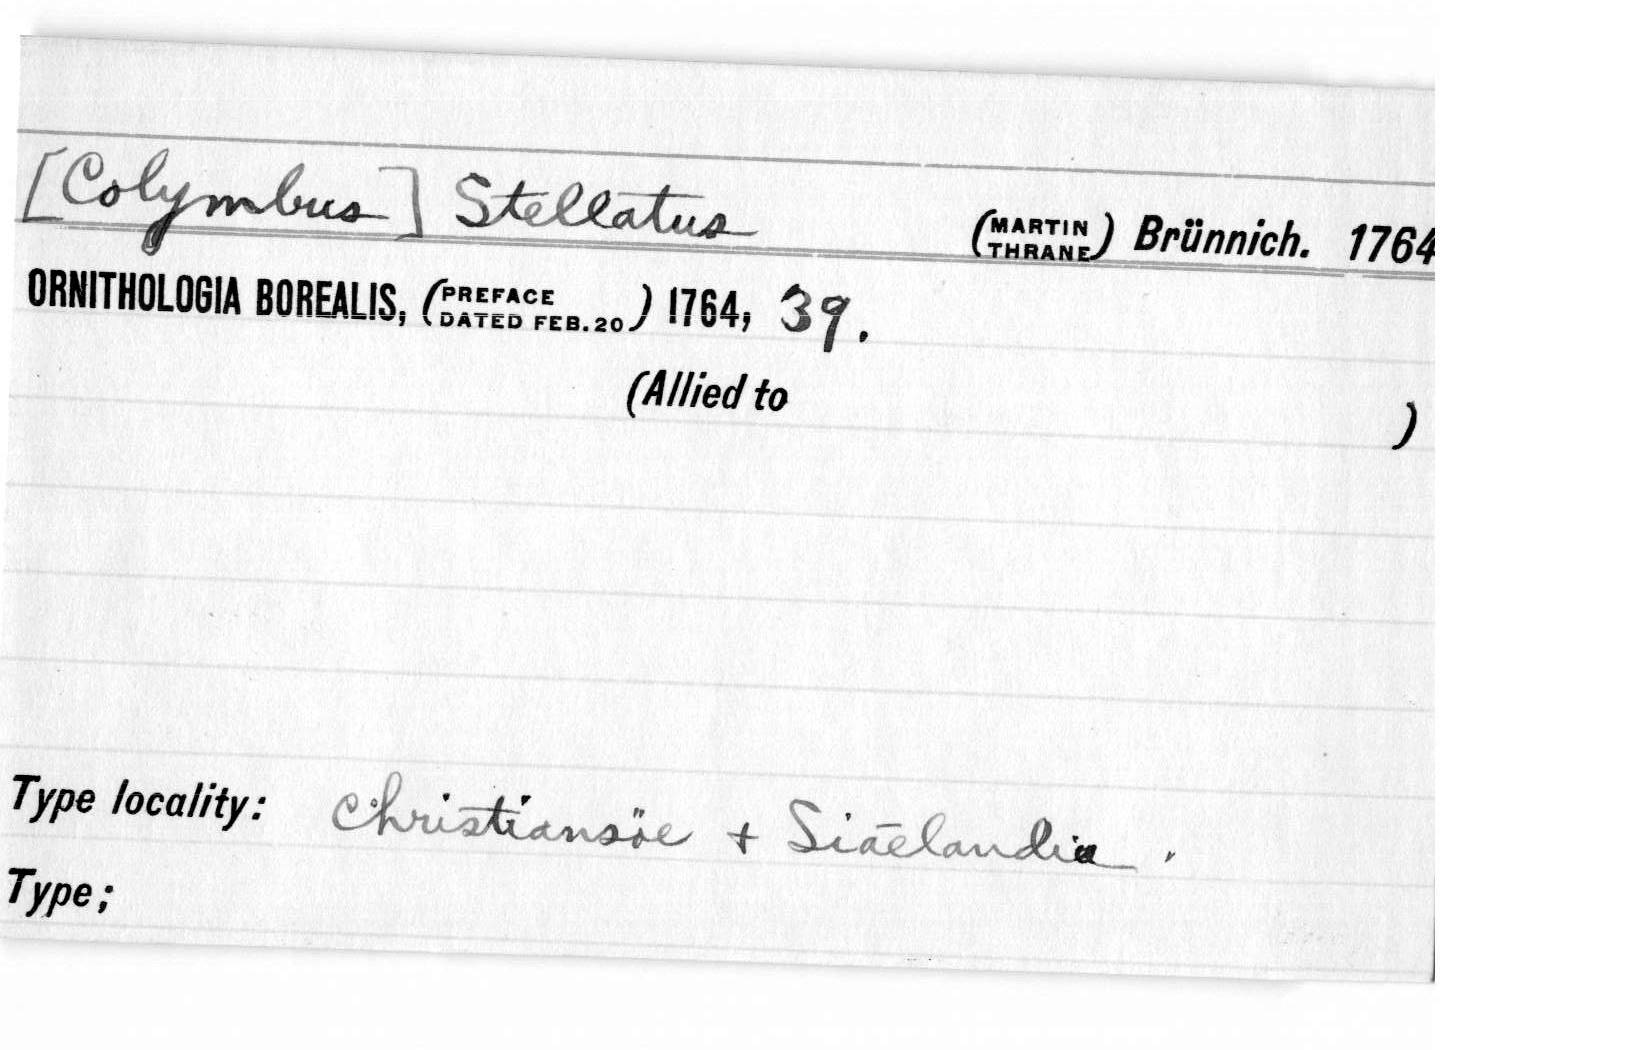 [Colymbus] Stellatus (MARTIN THRANE) Brünnich. 1764
ORNITHOLOGIA BOREALIS, (PREFACE DATED FEB. 20) 1764, 39.
(Allied to )
Type locality: Christiansöe + Siäelandia.
Type;